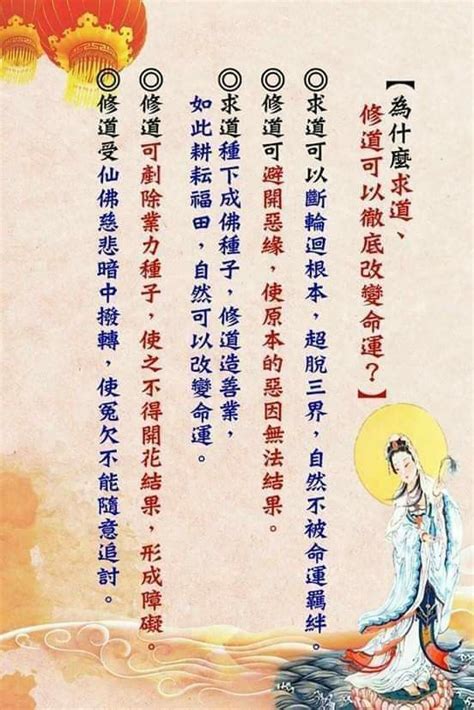 【為什麼求道、
修道可以徹底改變命運？】
◎求道可以斷輪迴根本，超脫三界，自然不被命運羈絆。
◎修道可避開惡緣，使原本的惡因無法結果。
◎求道種下成佛種子，修道造善業，
如此耕耘福田，自然可以改變命運。
◎修道可剷除業力種子，使之不得開花結果，形成障礙。
◎修道受仙佛慈悲暗中撥轉，使冤欠不能隨意追討。